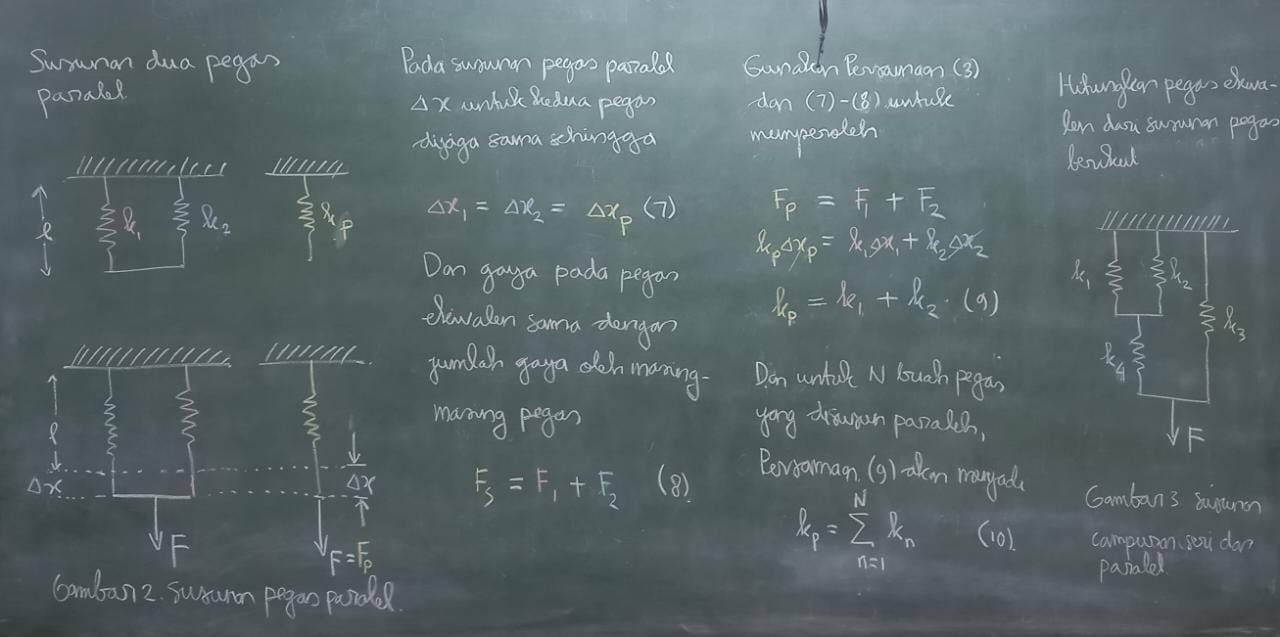 Susunan dua pegas
paralel
k₁
k₂
kₚ
l
l
Δx
Δx
F
F = Fₚ
Gambar 2. Susunan pegas paralel.
Pada susunan pegas paralel
Δx untuk kedua pegas
dijaga sama sehingga
Δx₁ = Δx₂ = Δxₚ (7)
Dan gaya pada pegas
ekivalen sama dengan
jumlah gaya oleh masing-
masing pegas
Fₛ = F₁ + F₂ (8)
Gunakan Persamaan (3)
dan (7)-(8) untuk
memperoleh
Fₚ = F₁ + F₂
kₚΔxₚ = k₁Δx₁ + k₂Δx₂
kₚ = k₁ + k₂. (9)
Dan untuk N buah pegas
yang disusun paralel,
Persamaan (9) akan menjadi
kₚ = Σ kₙ (10)
N
n=1
Hitunglan pegas ekiva-
len dari susunan pegas
berikut
k₁
k₂
k₃
k₄
F
Gambar 3 susunan
campuran seri dan
paralel.